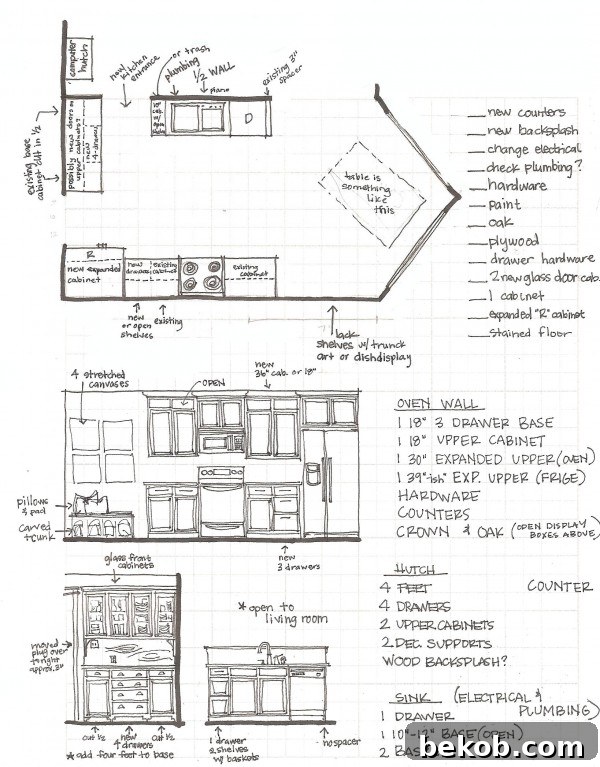 computer
hutch
new
kitchen
entrance
or trash
plumbing
1/2 WALL
piano
existing 3"
spacer
D
existing base
cabinet cut in 1/2
possibly new doors on
upper cabinets
new
4 drawer
table is
something
like
this
R
new expanded
cabinet
new
drawers
existing
cabinet
existing
cabinet
new
or open
shelves
existing
lack
shelves w/ trunck
art or dishdisplay
new counters
new backsplash
change electrical
check plumbing?
hardware
paint
oak
plywood
drawer hardware
2 new glass door cab.
1 cabinet
expanded "R" cabinet
stained floor
4 stretched
canvases
OPEN
new
36" cab. or 18"
pillows
& pad
carved
trunk
new
3 drawers
OVEN WALL
1 18" 3 DRAWER BASE
1 18" UPPER CABINET
1 30" EXPANDED UPPER (OVEN)
1 39"-ish EXP. UPPER (FRIGE)
HARDWARE
COUNTERS
CROWN & OAK (OPEN DISPLAY
BOXES ABOVE)
glass front
cabinets
moved
plug over
to right
approx. 3"
cut 1/2
new
4 drawers
cut 1/2
* add four feet to base
* open to
living room
1 drawer
2 shelves
w/ baskets
no spacer
HUTCH
4 FEET COUNTER
4 DRAWERS
2 UPPER CABINETS
2 DEC. SUPPORTS
WOOD BACKSPLASH?
SINK (ELECTRICAL &
PLUMBING)
1 DRAWER
1 10"-12" BASE (OPEN)
2 BAS
bekob.com